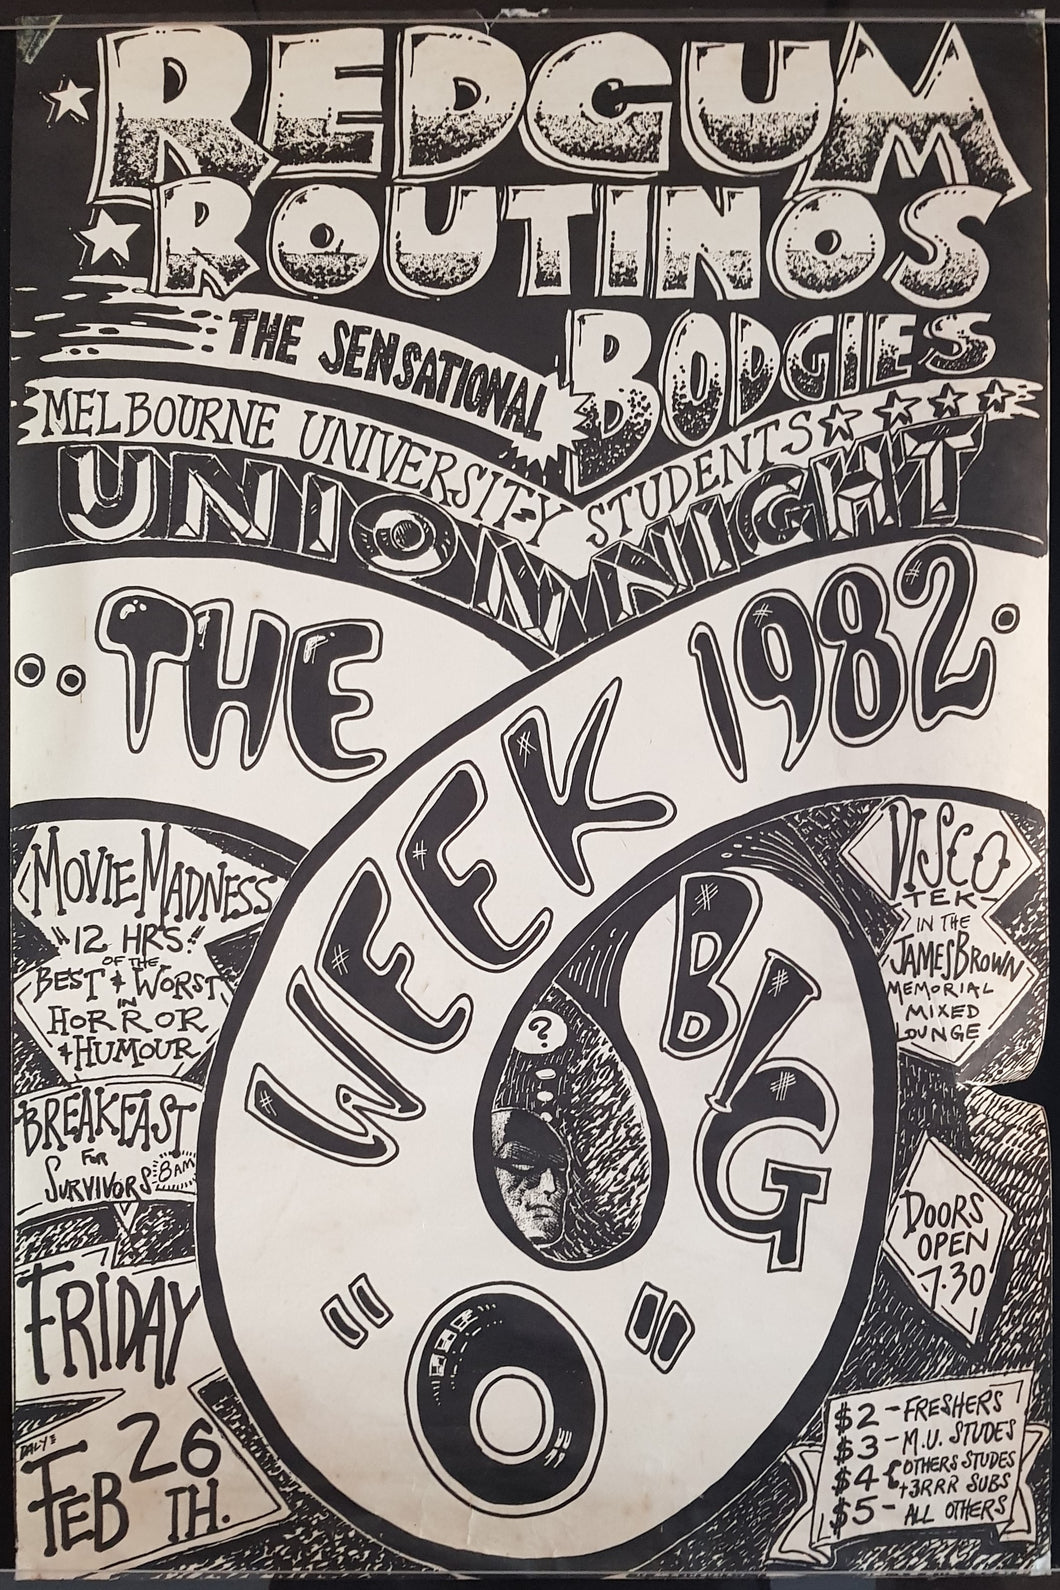 REDGUM
ROUTINOS
THE SENSATIONAL BODGIES
MELBOURNE UNIVERSITY STUDENTS
UNION NIGHT
.. THE BIG "O" WEEK 1982.
MOVIE MADNESS
"12 HRS"
OF THE
BEST & WORST
IN
HORROR
& HUMOUR
BREAKFAST
FOR
SURVIVORS 8AM
FRIDAY
DALY
FEB 26TH.
?
DISCO
TEK
IN THE
JAMES BROWN
MEMORIAL
MIXED
LOUNGE
DOORS
OPEN
7.30
$2 - FRESHERS
$3 - M.U. STUDES
$4 { OTHERS STUDES
+ 3RRR SUBS
$5 - ALL OTHERS